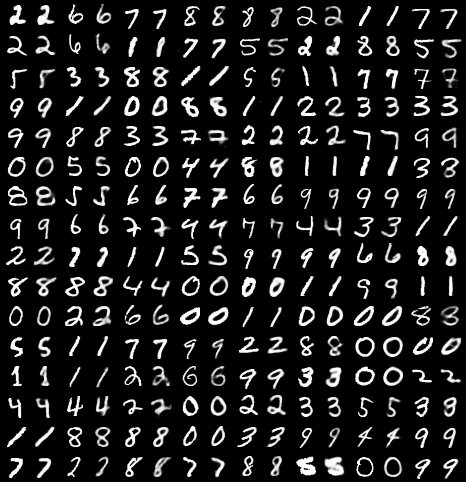 2 2 6 6 7 7 8 8 8 8 2 2 1 1 7 7
2 2 6 6 1 1 7 7 5 5 2 2 8 8 5 5
5 5 3 3 8 8 1 1 5 5 1 1 7 7 7 7
9 9 1 1 0 0 8 8 1 1 2 2 3 3 3 3
9 9 8 8 3 3 7 7 2 2 2 2 7 7 9 9
0 0 5 5 0 0 4 4 8 8 1 1 1 1 3 3
8 8 5 5 6 6 7 7 6 6 9 9 9 9 9 9
9 9 6 6 7 7 4 4 7 7 4 4 3 3 1 1
2 2 1 1 1 1 5 5 9 9 9 9 6 6 8 8
8 8 8 8 4 4 0 0 0 0 1 1 9 9 1 1
0 0 2 2 6 6 0 0 1 1 0 0 0 0 8 8
5 5 1 1 7 7 9 9 2 2 8 8 0 0 0 0
1 1 1 1 2 2 6 6 9 9 3 3 0 0 2 2
4 4 4 4 2 2 0 0 2 2 3 3 5 5 3 3
1 1 8 8 8 8 0 0 3 3 9 9 4 4 9 9
7 7 2 2 8 8 7 7 8 8 5 5 0 0 9 9